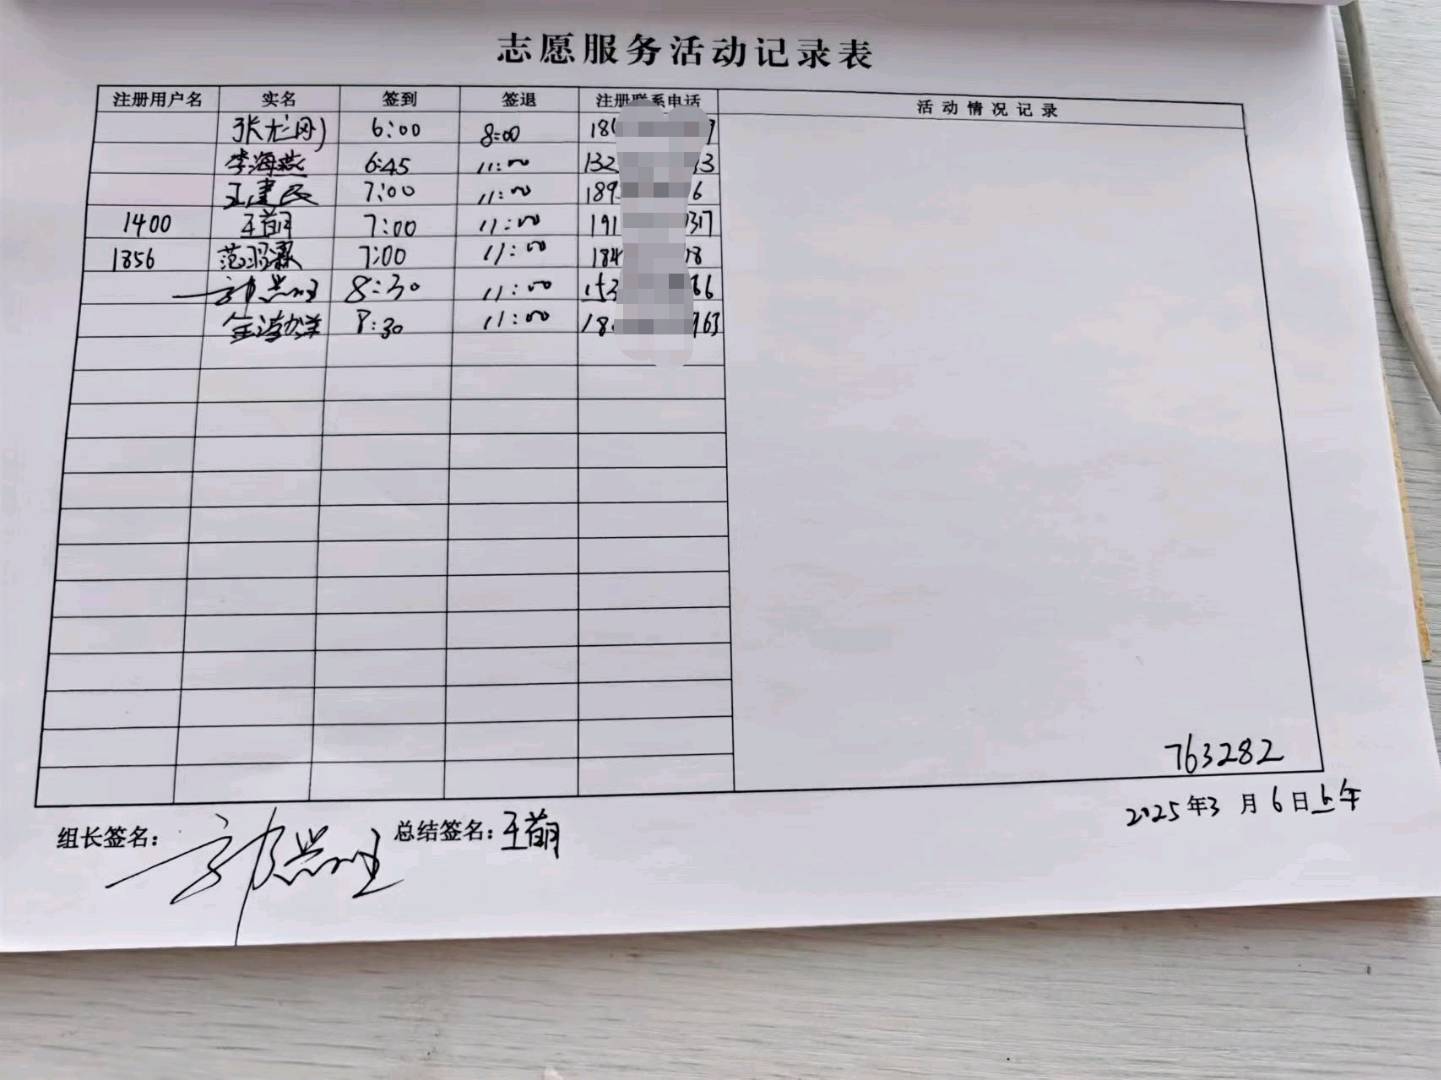 志愿服务活动记录表
注册用户名 实名 签到 签退 注册联系电话 活动情况记录
张龙刚 6:00 8:00 18
李海燕 6:45 11:00 132 3
王建民 7:00 11:00 189 6
1400 王萌 7:00 11:00 191 317
1856 范羽霖 7:00 11:00 184 8
8:30 11:00 153 66
8:30 11:00 18 963
763282
组长签名: 总结签名:王萌 2025年3月6日上午